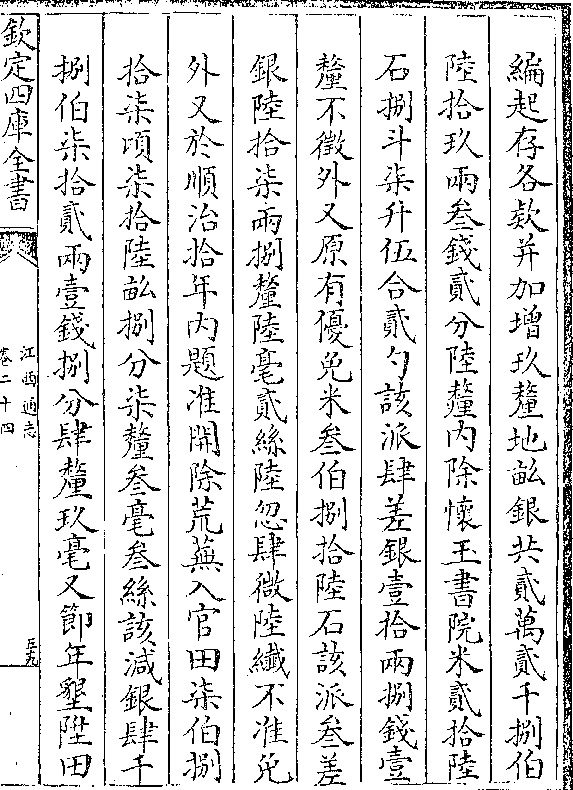 編起存各欵并加增玖釐地畝銀共貳萬貳千捌伯
陸拾玖兩叁錢貳分陸釐内除懷玉書院米貳拾陸
石捌斗柒升伍合貳勺該派肆差銀壹拾兩捌錢壹
釐不徵外又原有優免米叁伯捌拾陸石該派叁差
銀陸拾柒兩捌釐陸毫貳絲陸忽肆微陸纖不准免
外又於順治拾年内題准開除荒蕪入官田柒伯捌
拾柒頃柒拾陸畝捌分柒釐叁毫叁絲該減銀肆千
捌伯柒拾貳兩壹錢捌分肆釐玖毫又節年墾陞田
欽定四庫全書
江西通志
卷二十四
五九